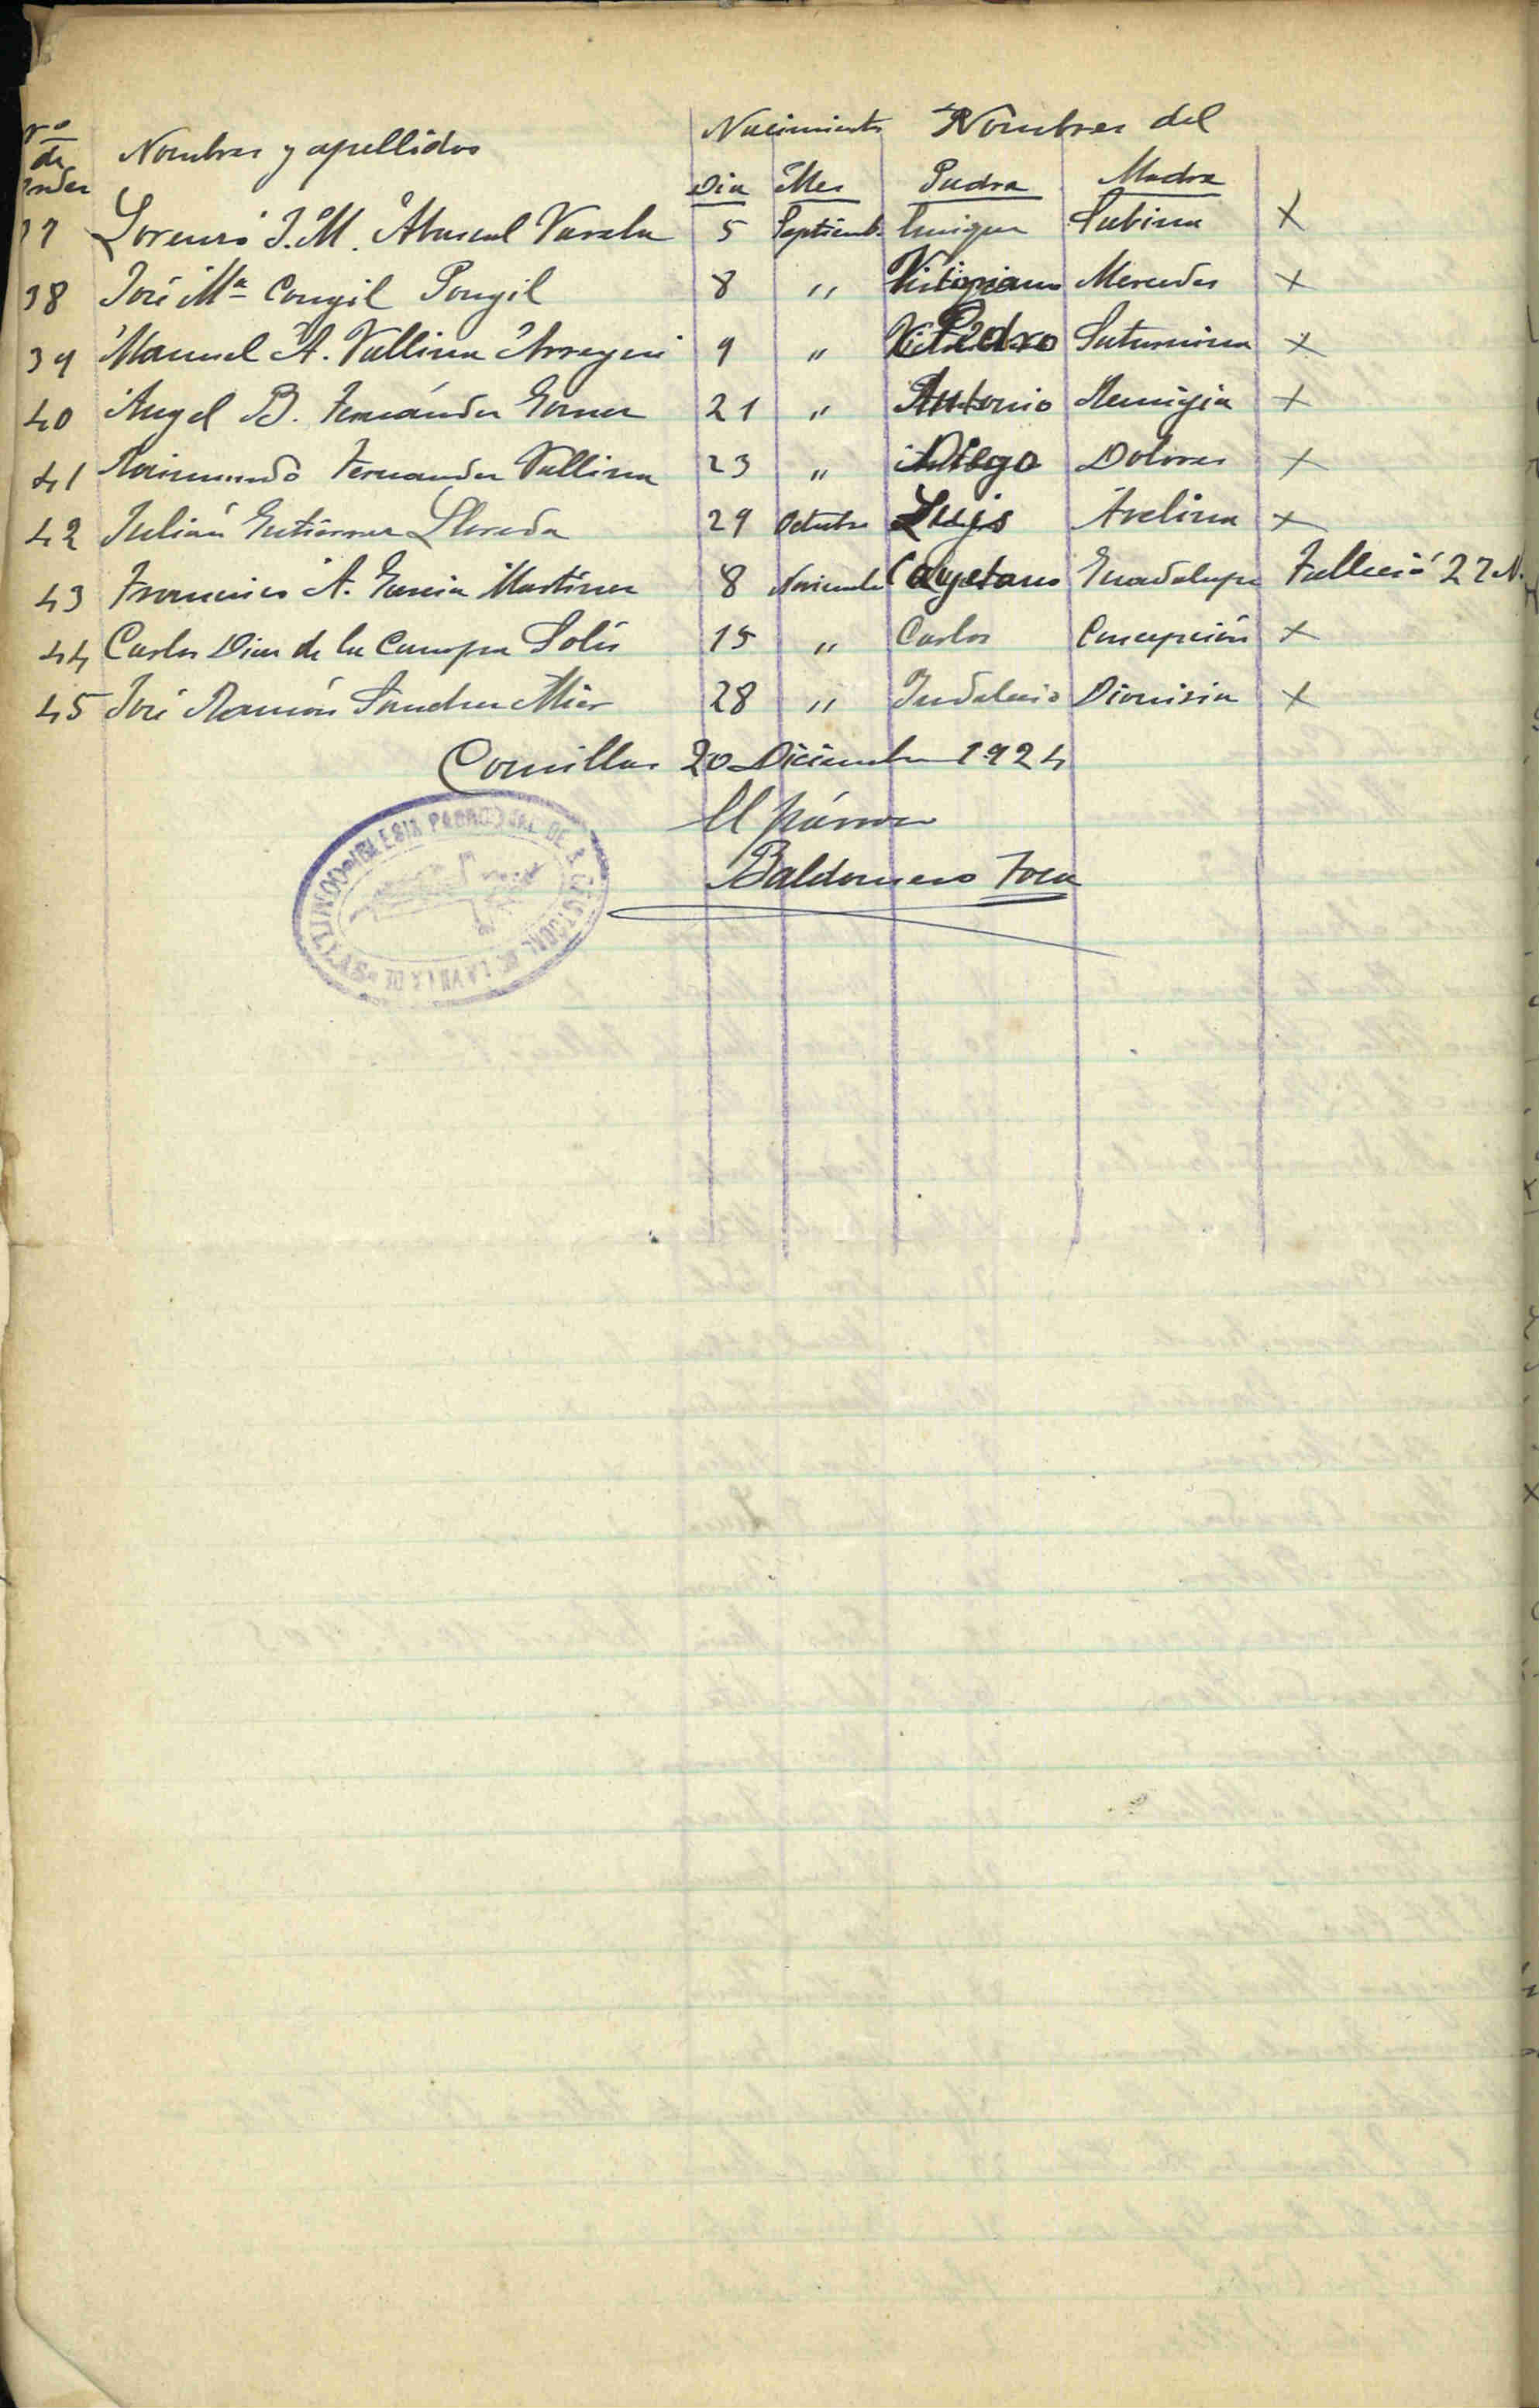 de Nombres y apellidos Nacimiento Nombres del
Dia Mes Padre Madre
37 Lorenzo J. M. Abascal Varela 5 Septiemb. Enrique Sabina X
38 José Mª Congil Pongil 8 " Victoriano Mercedes X
39 Manuel A. Vallina 9 " Pedro Saturnina X
40 Angel B. Fernández Gomez 21 " Antonio Remigia X
41 Raimundo Fernandez Vallina 23 " Diego Dolores X
42 Julián Gutiérrez Lloreda 29 Octubre Luis Avelina X
43 Francisco A. Garcia Martínez 8 Noviembre Cayetano Guadalupe Falleció 27 N.
44 Carlos Diaz de la Campa Solís 15 " Carlos Concepción X
45 José Ramón Sanchez Mier 28 " Indalecio Dionisia X
Comillas 20 Diciembre 1924
El párroco
Baldomero Toca
IGLESIA PARROQUIAL DE S. CRISTOBAL DE LA VILLA DE COMILLAS